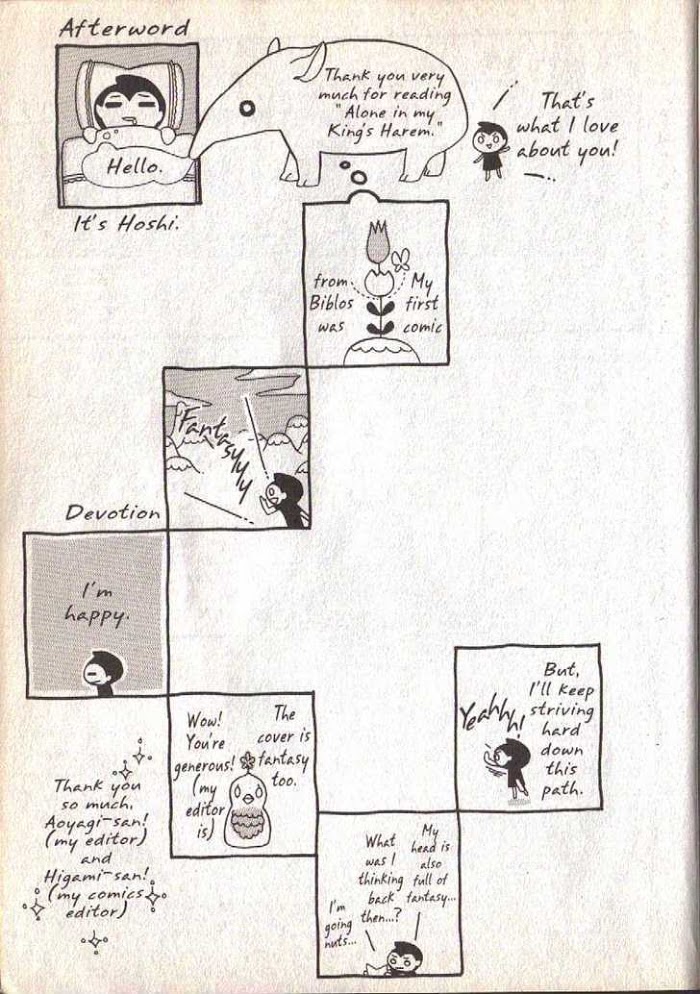 Afterword
Hello.
It's Hoshi.
Thank you very
much for reading
"Alone in my
King's Harem."
That's
what I love
about you!
My
first
comic
from
Biblos
was
Fantasyyy
Devotion
I'm
happy.
The
cover is
fantasy
too.
Wow!
You're
generous!
(my
editor
is)
Thank you
so much,
Aoyagi-san!
(my editor)
and
Higami-san!
(my comics
editor)
My
head is
also
full of
fantasy...
What
was I
thinking
back
then...?
I'm
going
nuts...
But,
I'll keep
striving
hard
down
this
path.
Yeahhh!